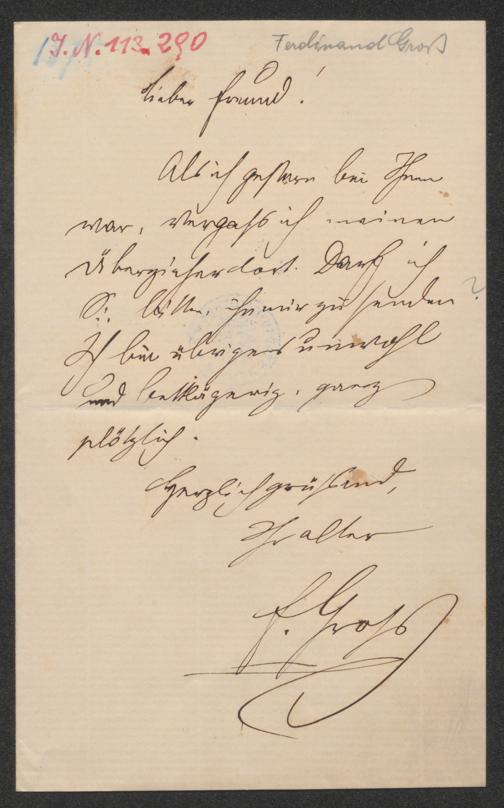 J. N. 113.290
Ferdinand Groß
Lieber Freund!
Als ich gestern bei Ihnen
war, vergaß ich meinen
Überzieher dort. Darf ich
Sie bitten, ihn mir zu senden?
Ich bin übrigens unwohl
und bettlägerig, ganz
plötzlich.
Herzlich grüßend,
Ihr alter
F. Groß